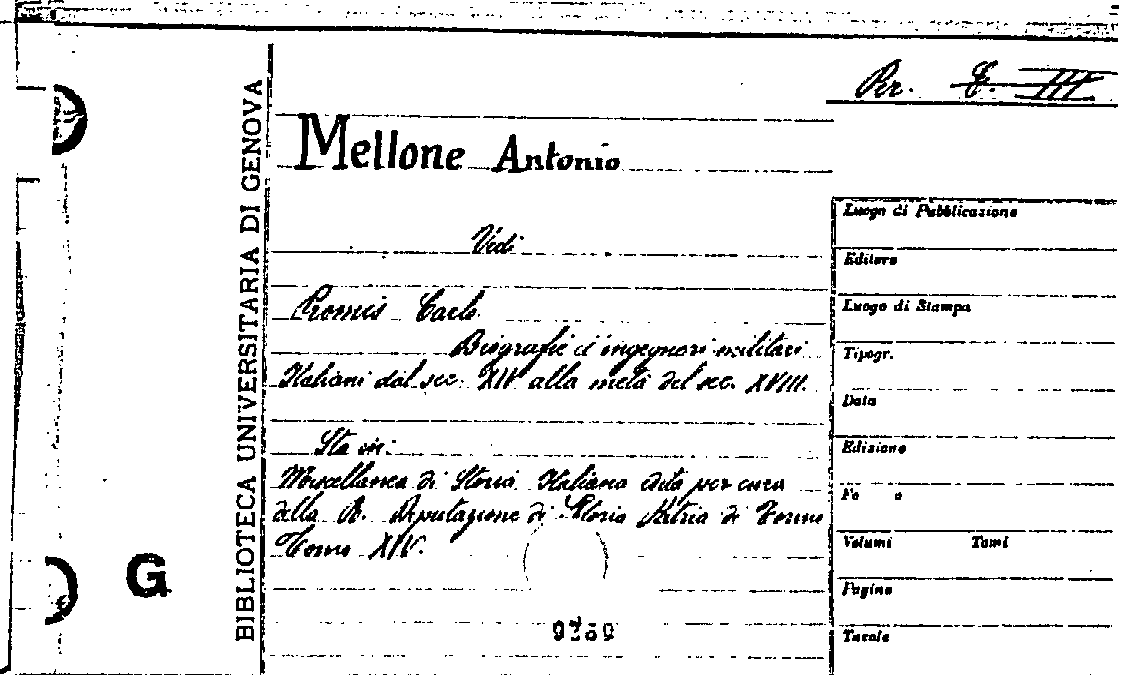 Per. E. III
BIBLIOTECA UNIVERSITARIA DI GENOVA
Mellone Antonio
Vedi
Promis Carlo
Biografie di ingegneri militari
Italiani dal sec. XIV alla metà del sec. XVIII.
Sta in:
Miscellanea di Storia Italiana edita per cura
della R. Deputazione di Storia Patria di Torino
Tomo XIV.
G
Luogo di Pubblicazione
Editore
Luogo di Stampa
Tipogr.
Data
Edizione
Volumi Tomi
Pagine
Tavole